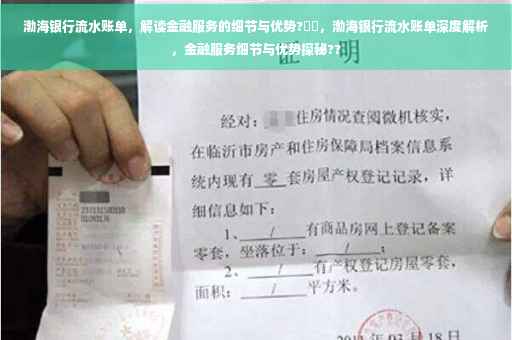 渤海银行流水账单，解读金融服务的细节与优势?▯▯，渤海银行流水账单深度解析
，金融服务细节与优势探秘??
证 明
经对：住房情况查阅微机核实，
在临沂市房产和住房保障局档案信息系
统内现有 零 套房屋产权登记记录，详
细信息如下：
1、 / 有商品房网上登记备案
零套，坐落位于： / ；
2、 / 有产权登记房屋零套，
面积： / 平方米。
03月18日